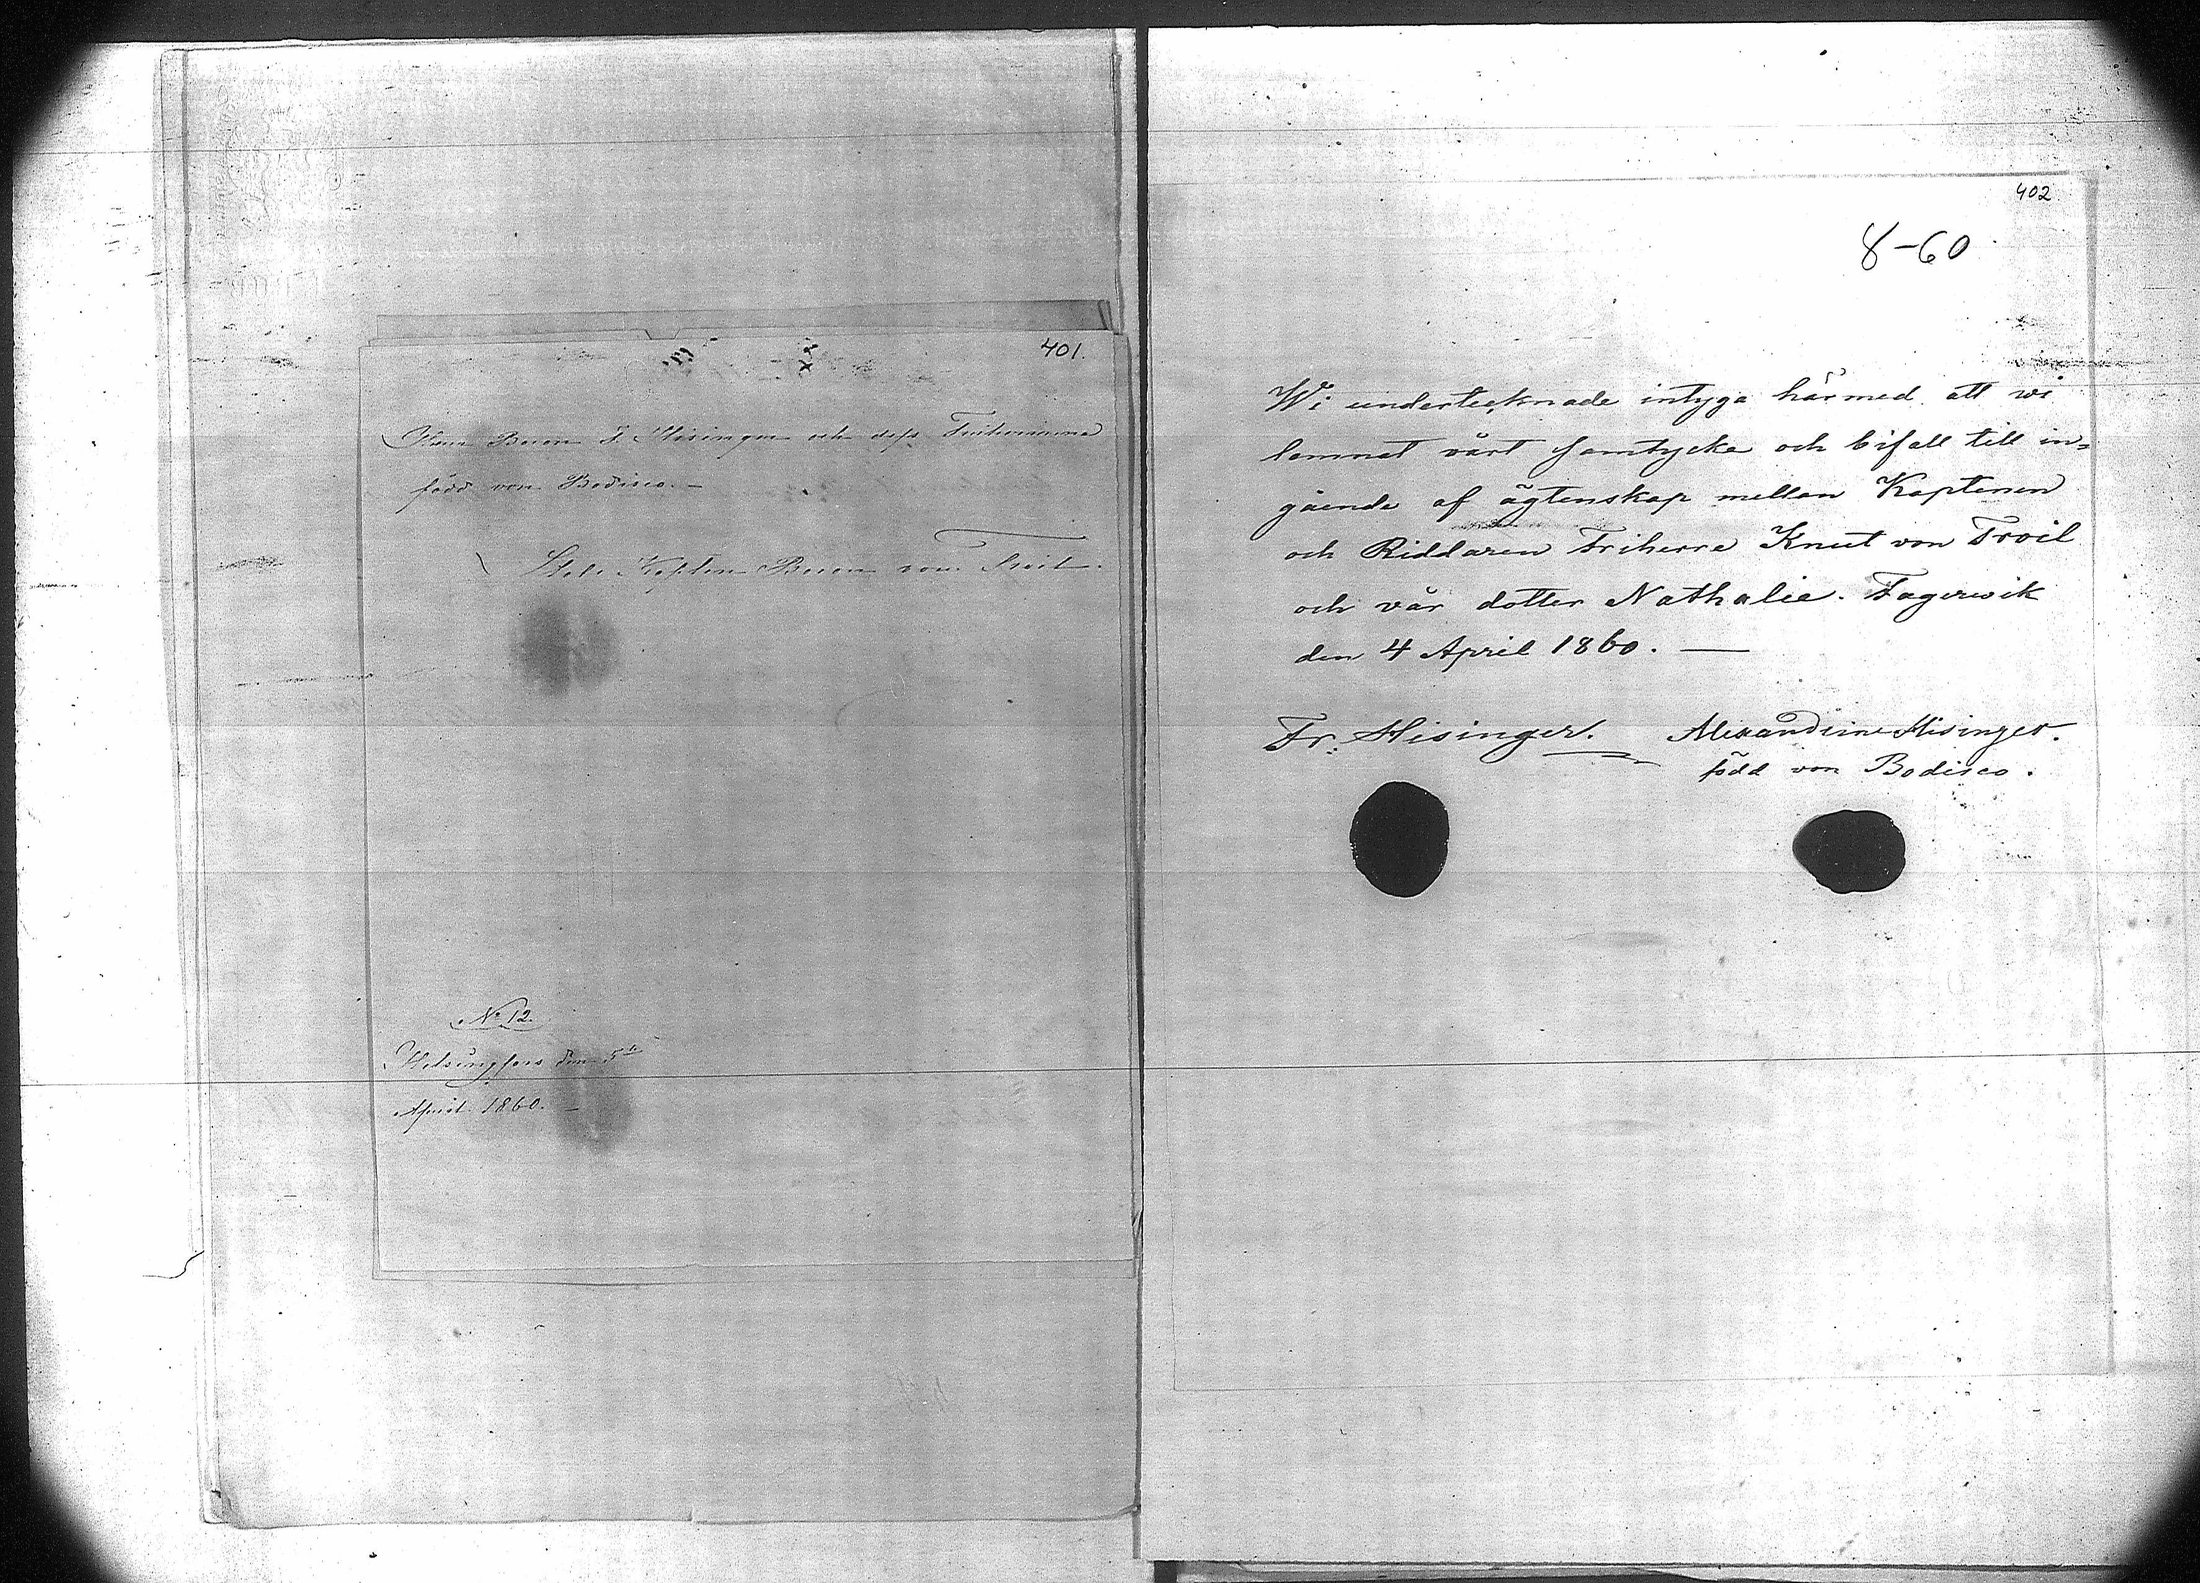 401.
Herr Baron F. Hisinger och dess Friherrinna
född von Bodisco. –
Kapten Baron von Troil.
No 12.
Helsingfors den 5te
April 1860. –
402
8-60
Wi undertecknade intyga härmed att wi
lemnat vårt samtycke och bifall till in=
gående af ägtenskap mellan Kaptenen
och Riddaren Friherre Knut von Troil
och vår dotter Nathalie. Fagerwik
den 4 April 1860. —
Fr: Hisinger. Alexandrine Hisinger.
född von Bodisco.